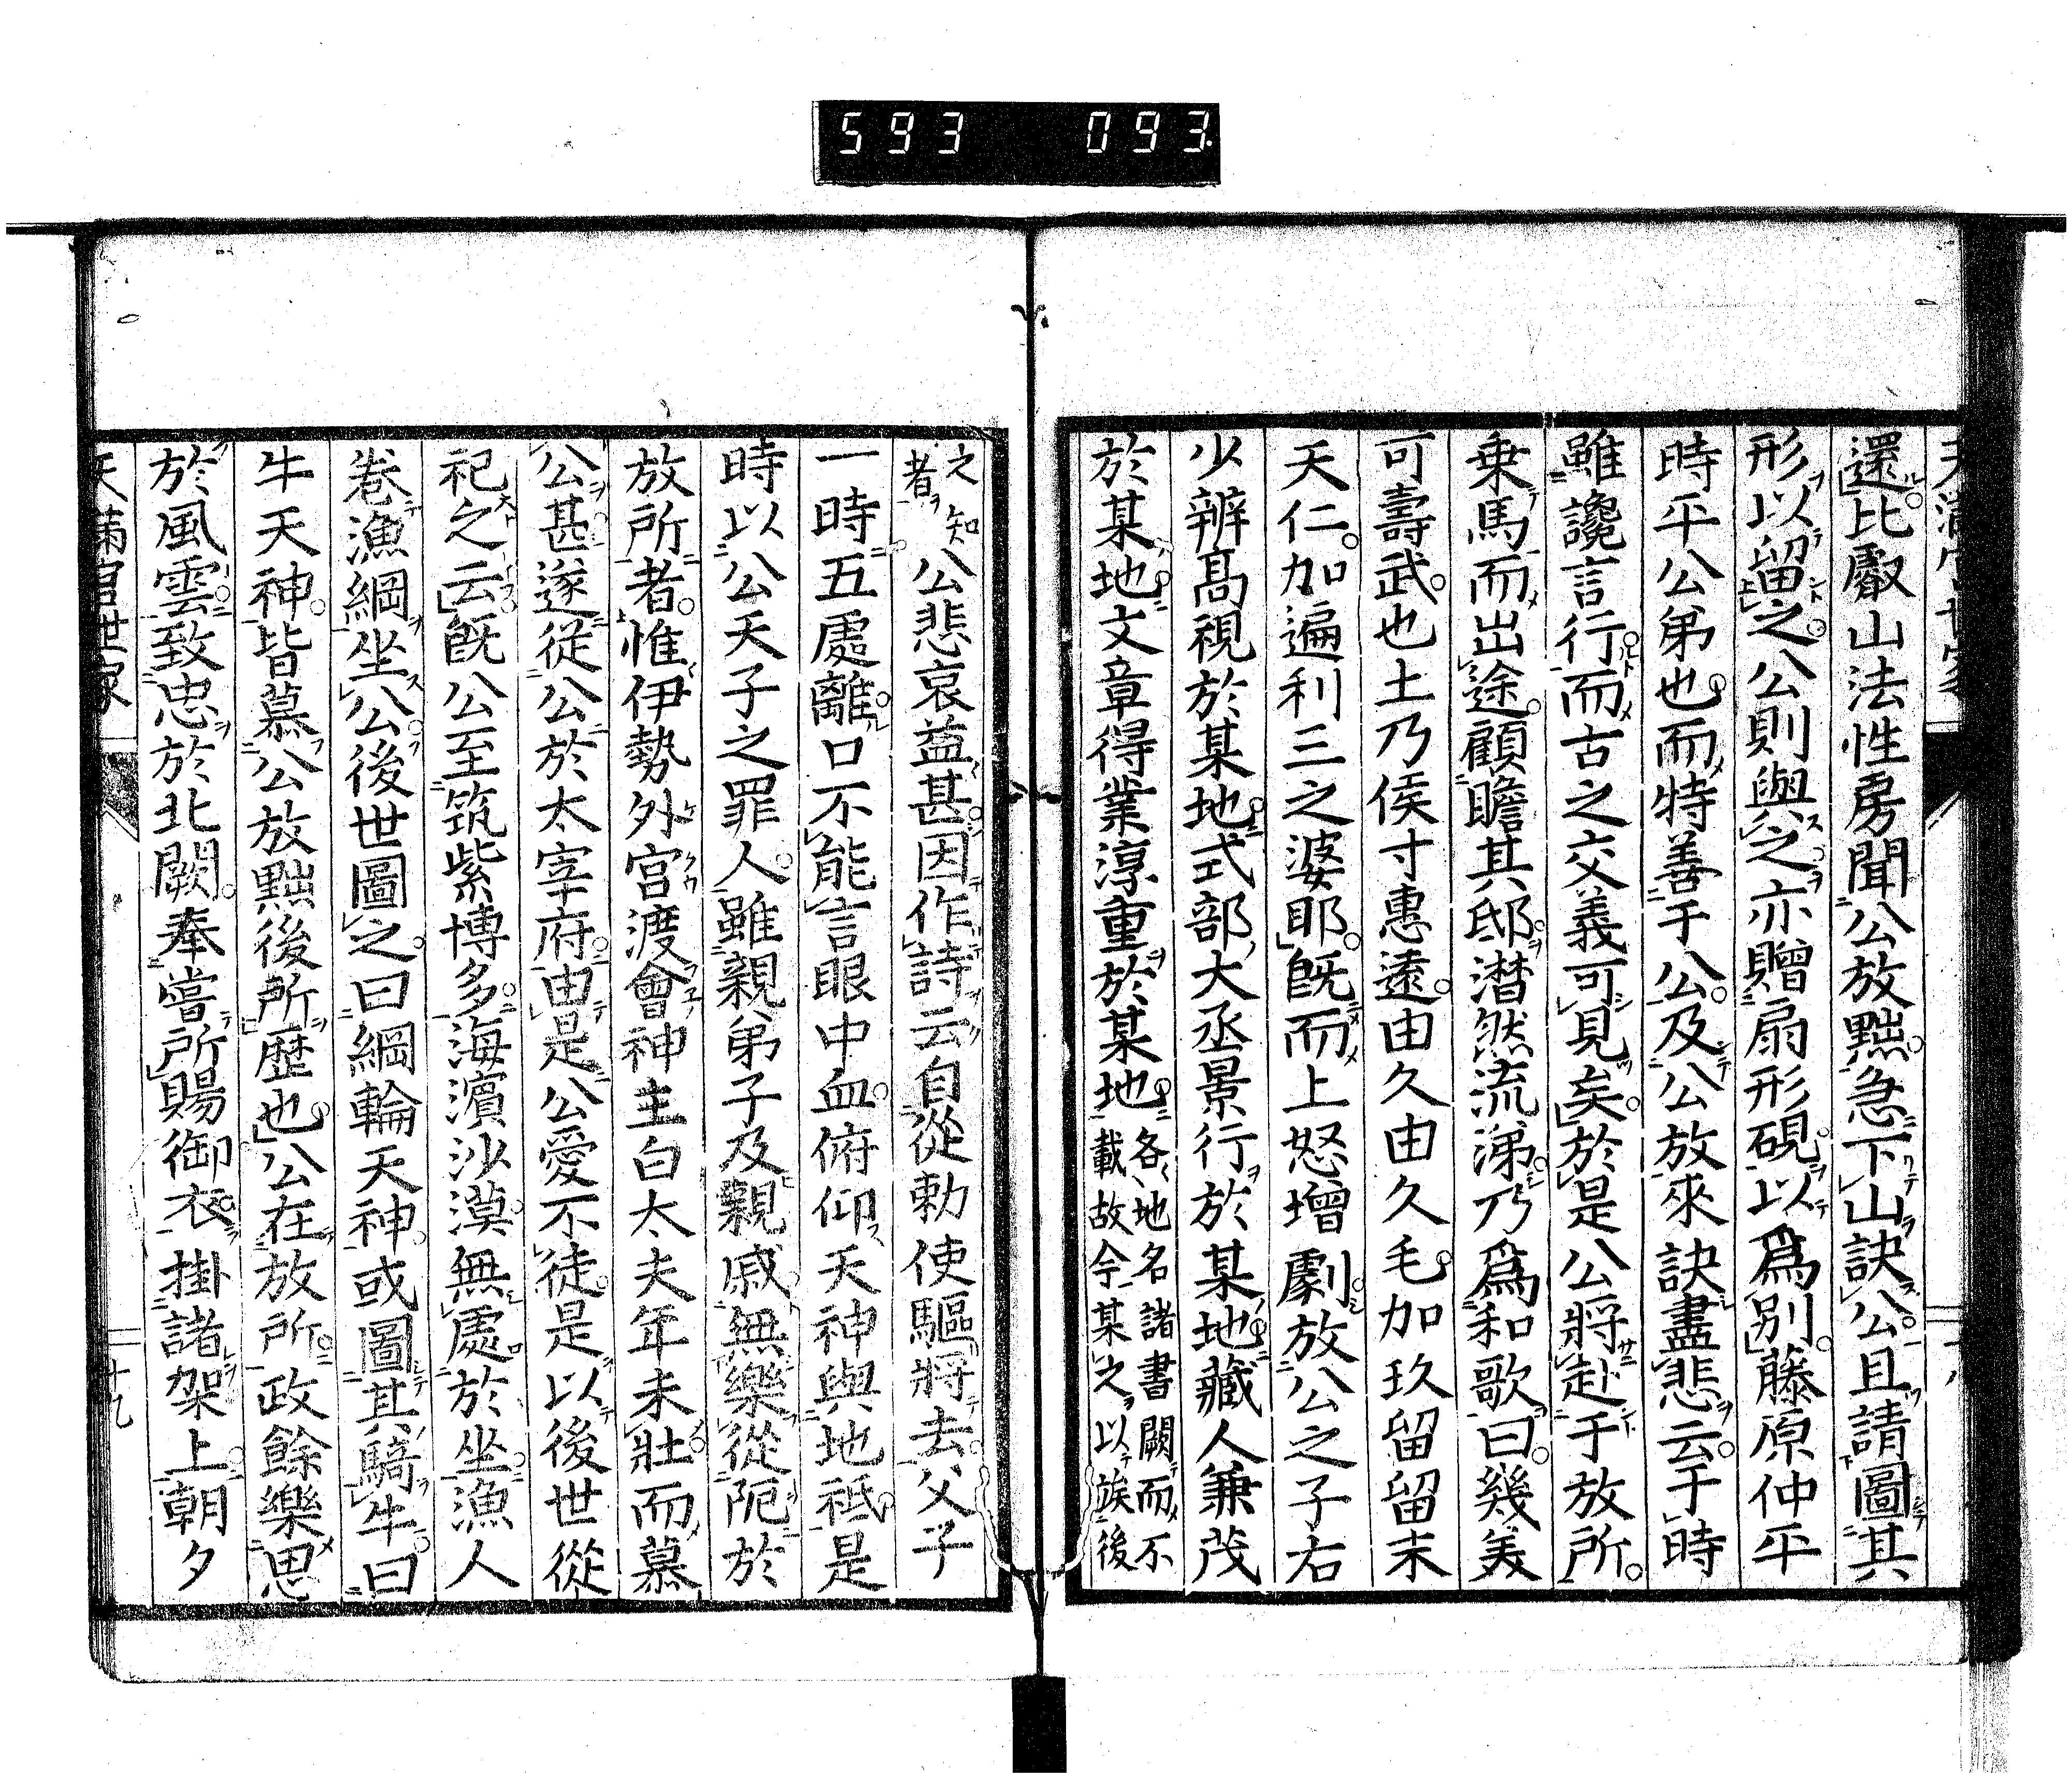 593 093
還比叡山法性房聞公放黜急下山訣公且請圖其
形以留之公則與之亦贈扇形硯以爲別藤原仲平
時平公弟也而特善于公及公放來訣盡悲云于時
雖讒言行而古之交義可見矣於是公將赴于放所
乗馬而出途顧瞻其邸潜然流涕乃爲和歌曰幾美
可壽武也土乃侯寸惠遠由久由久毛加玖留留末
天仁加遍利三之婆耶既而上怒增劇放公之子右
少辨髙視於某地式部大丞景行於某地藏人兼茂
於某地文章得業淳重於某地各各地名諸書闕而不
載故今某之以竢後
之知
者公悲哀益甚因作詩云自從勅使驅將去父子
一時五處離口不能言眼中血俯仰天神與地祇是
時以公天子之罪人雖親弟子及親戚無樂從阨於
放所者惟伊勢外宮渡會神主白太夫年未壯而慕
公甚遂從公於太宰府由是公愛不徒是以後世從
祀之云既公至筑紫博多海濵沙漠無處於坐漁人
卷漁綱坐公後世圖之曰綱輪天神或圖其騎牛曰
牛天神皆慕公放黜後所歴也公在放所政餘樂思
於風雲致忠於北闕奉嘗所賜御衣掛諸架上朝夕
天満宮世家
十九